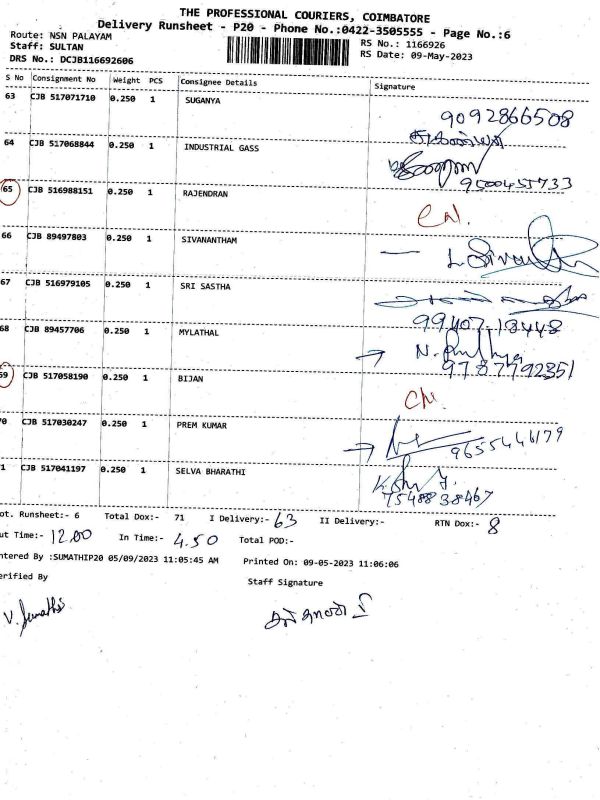 THE PROFESSIONAL COURIERS, COIMBATORE
Delivery Runsheet - P20 - Phone No.:0422-3505555 - Page No.:6
Route: NSN PALAYAM RS No.: 1166926
Staff: SULTAN RS Date: 09-May-2023
DRS No.: DCJB116692606
S No Consignment No Weight PCS Consignee Details Signature
63 CJB 517071710 0.250 1 SUGANYA 9092866508
64 CJB 517068844 0.250 1 INDUSTRIAL GASS
65 CJB 516988151 0.250 1 RAJENDRAN
66 CJB 89497803 0.250 1 SIVANANTHAM
67 CJB 516979105 0.250 1 SRI SASTHA
99407 18448
68 CJB 89457706 0.250 1 MYLATHAL
9787792351
69 CJB 517058190 0.250 1 BIJAN
70 CJB 517030247 0.250 1 PREM KUMAR 9655446179
71 CJB 517041197 0.250 1 SELVA BHARATHI
7548838467
ot. Runsheet:- 6 Total Dox:- 71 I Delivery:- 63 II Delivery:- RTN Dox:- 8
ut Time:- 12.00 In Time:- 4.50 Total POD:-
ntered By :SUMATHIP20 05/09/2023 11:05:45 AM Printed On: 09-05-2023 11:06:06
erified By Staff Signature
V. Sumathi